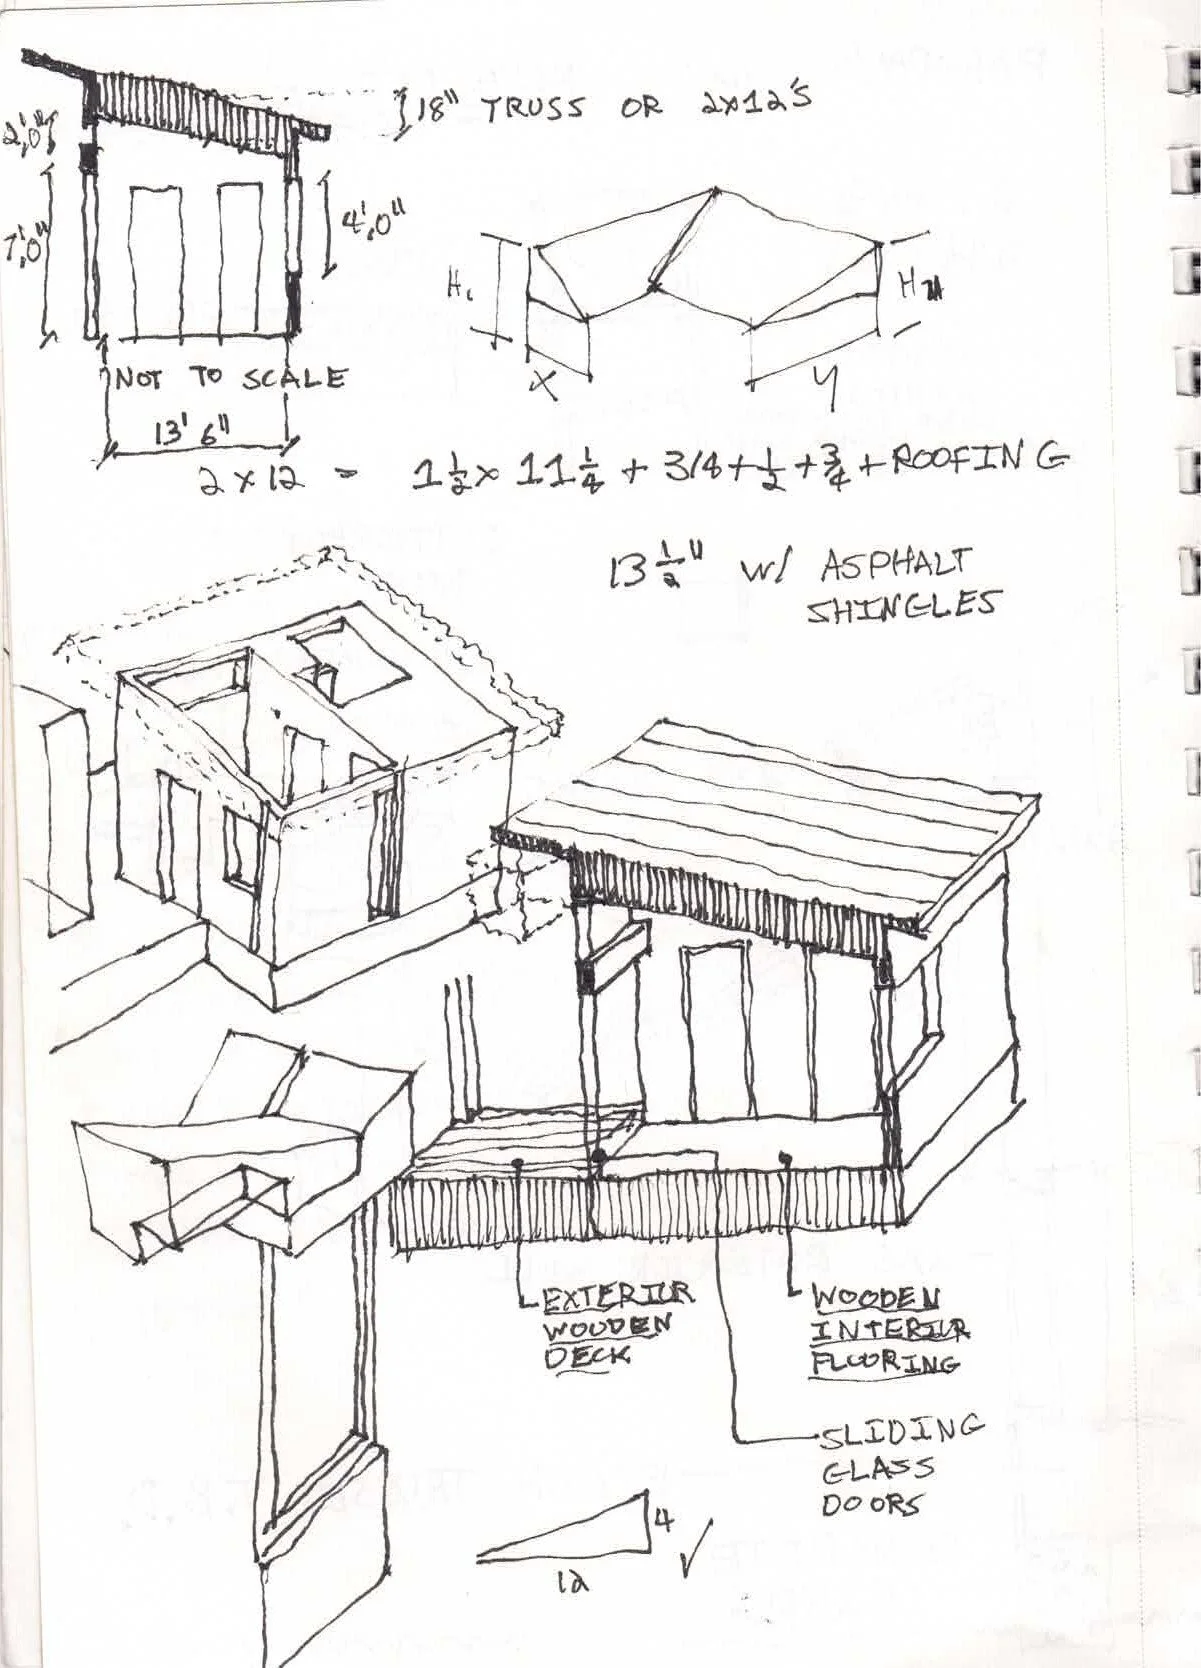 18" TRUSS OR 2x12'S
2',0"
7',0"
4',0"
H1
X
Y
NOT TO SCALE
13' 6"
2 x 12 = 1 1/2 x 11 1/4 + 3/4 + 1/2 + 3/4 + ROOFING
13 1/2" w/ ASPHALT
SHINGLES
EXTERIOR
WOODEN
DECK
WOODEN
INTERIOR
FLOORING
SLIDING
GLASS
DOORS
4
12